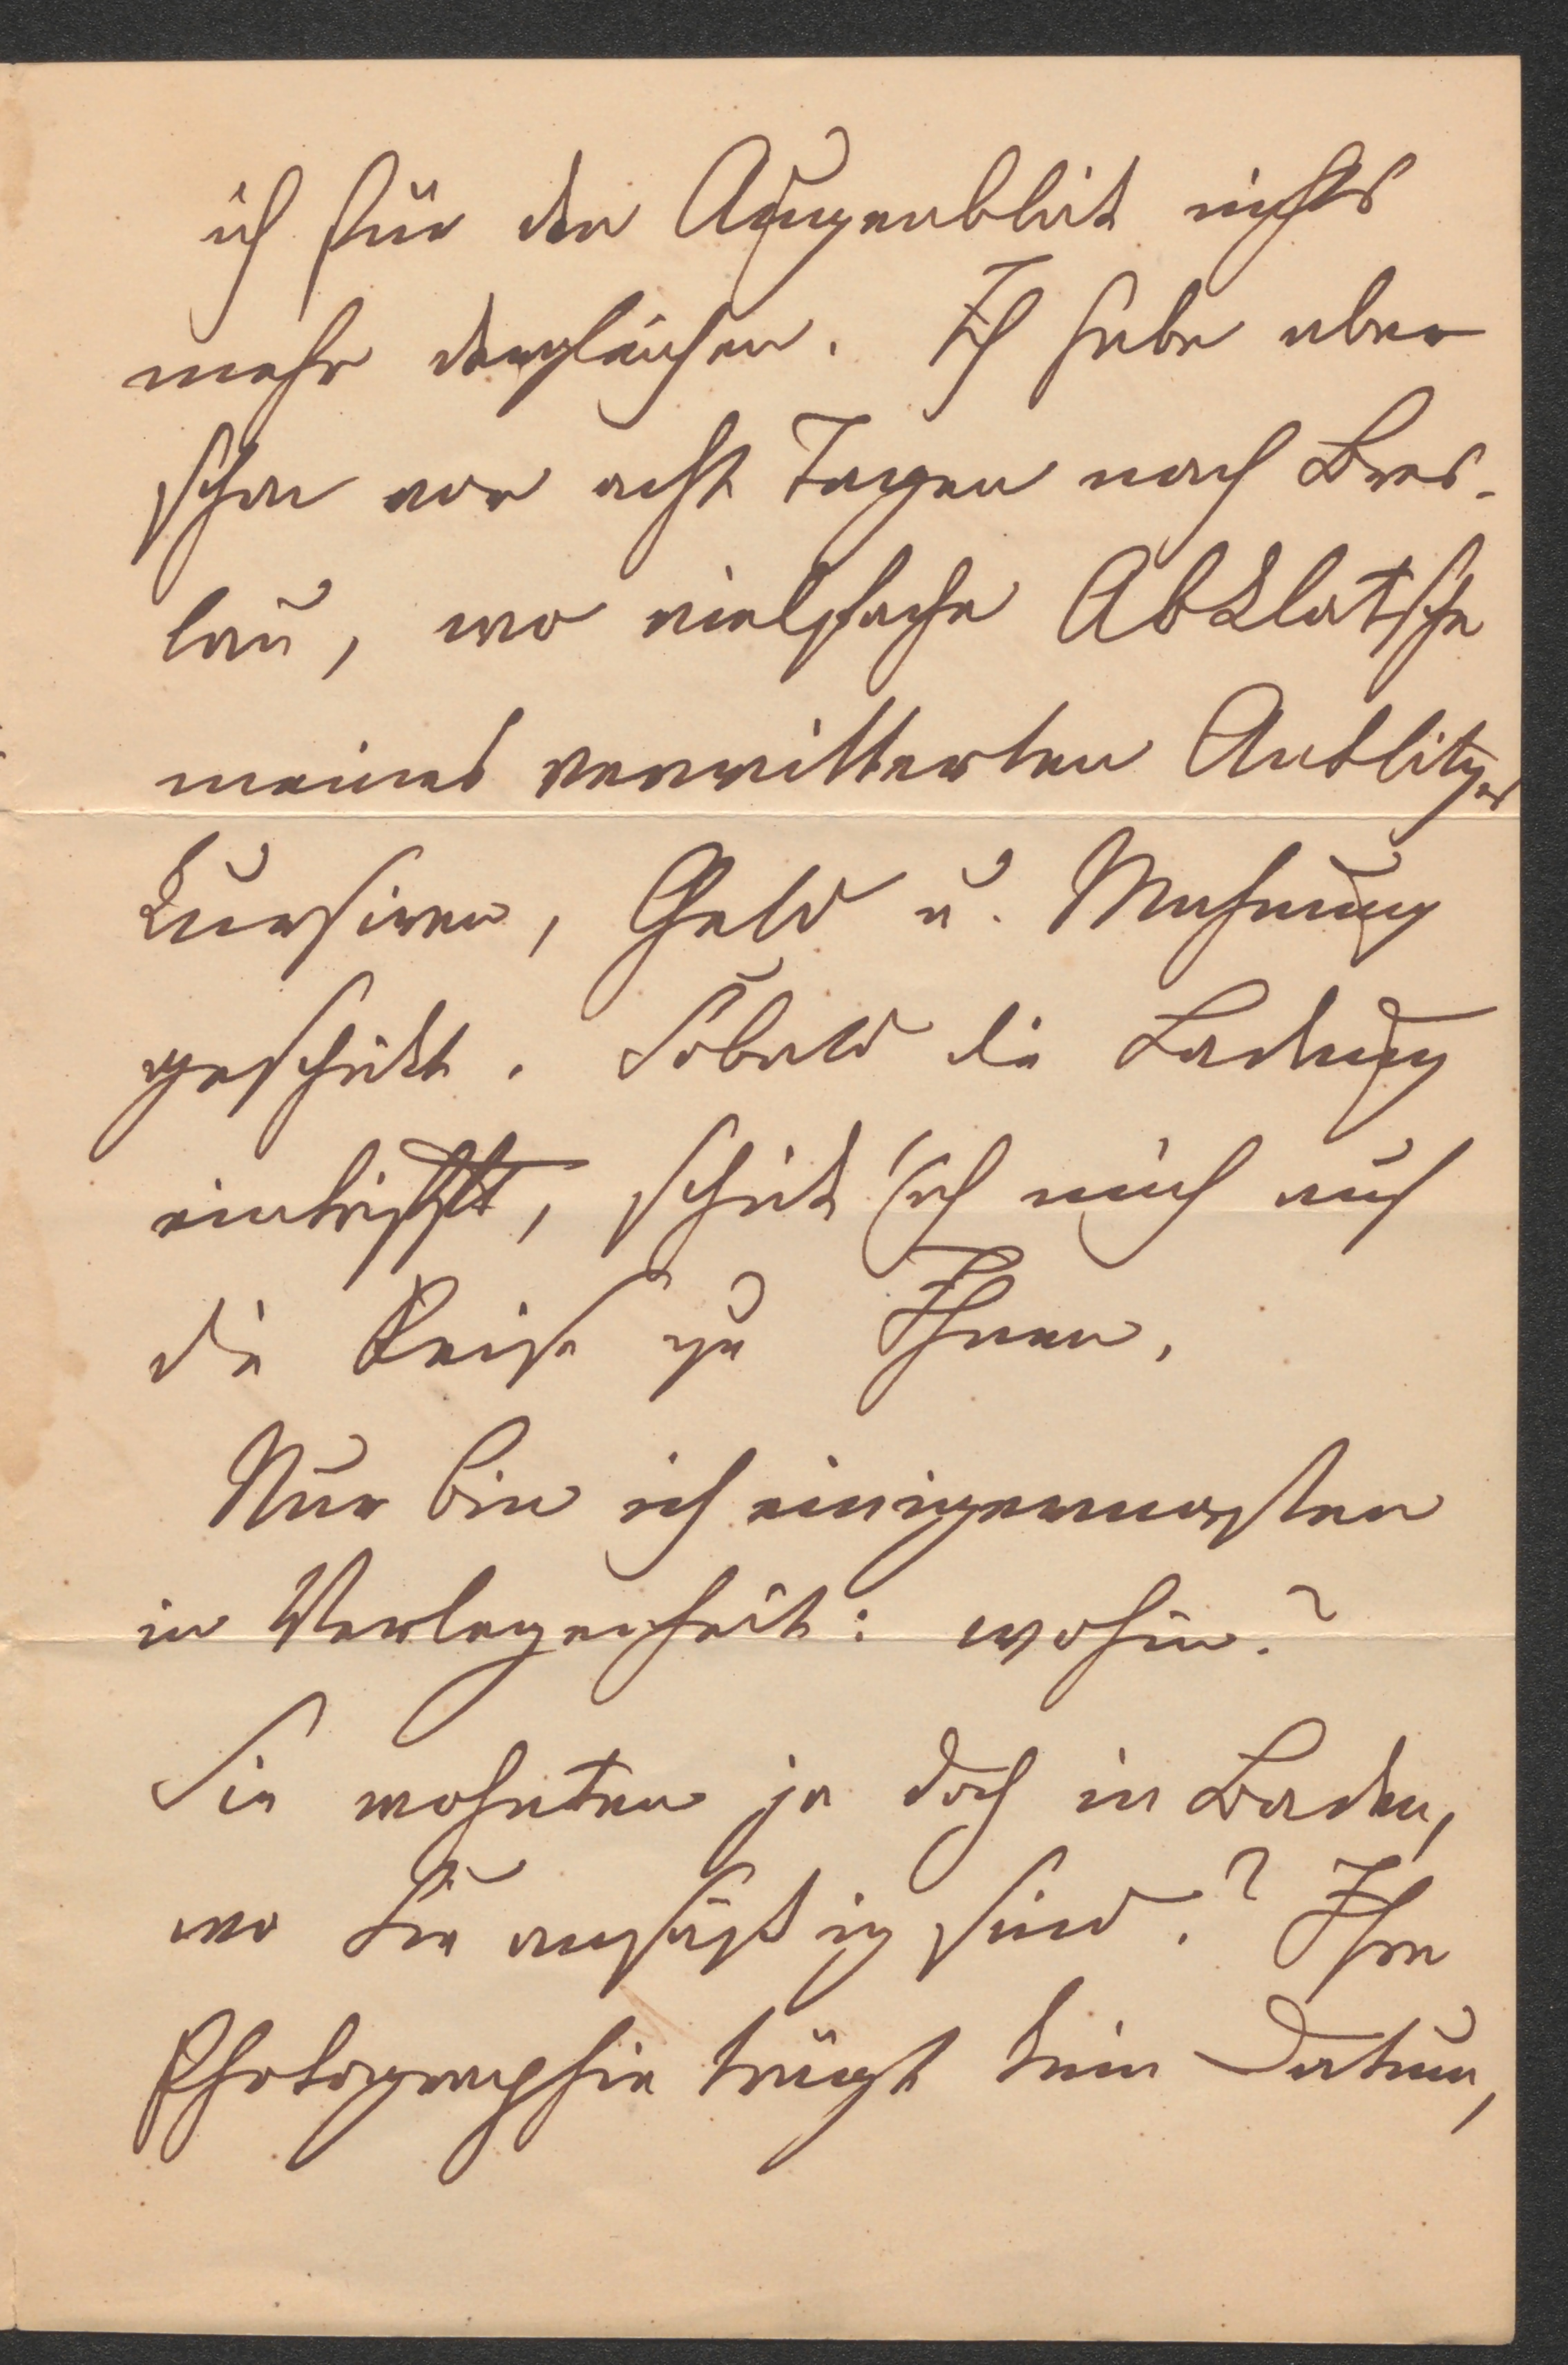 ich für den Augenblick nichts
mehr dergleichen. Ich habe aber
schon vor acht Tagen nach Bres-
lau, wo vielfache Abklatsche
meines verwitterten Antlitzes
kursiren, Geld u. Mahnung
geschickt. Sobald die Ladung
eintrifft, schick ich mich auf
die Reise zu Ihnen.
Nur bin ich einigermassen
in Verlegenheit: wohin?
Sie wohnten ja doch in Baden,
wo Sie ansässig sind? Ihre
Photographie trägt kein Datum,